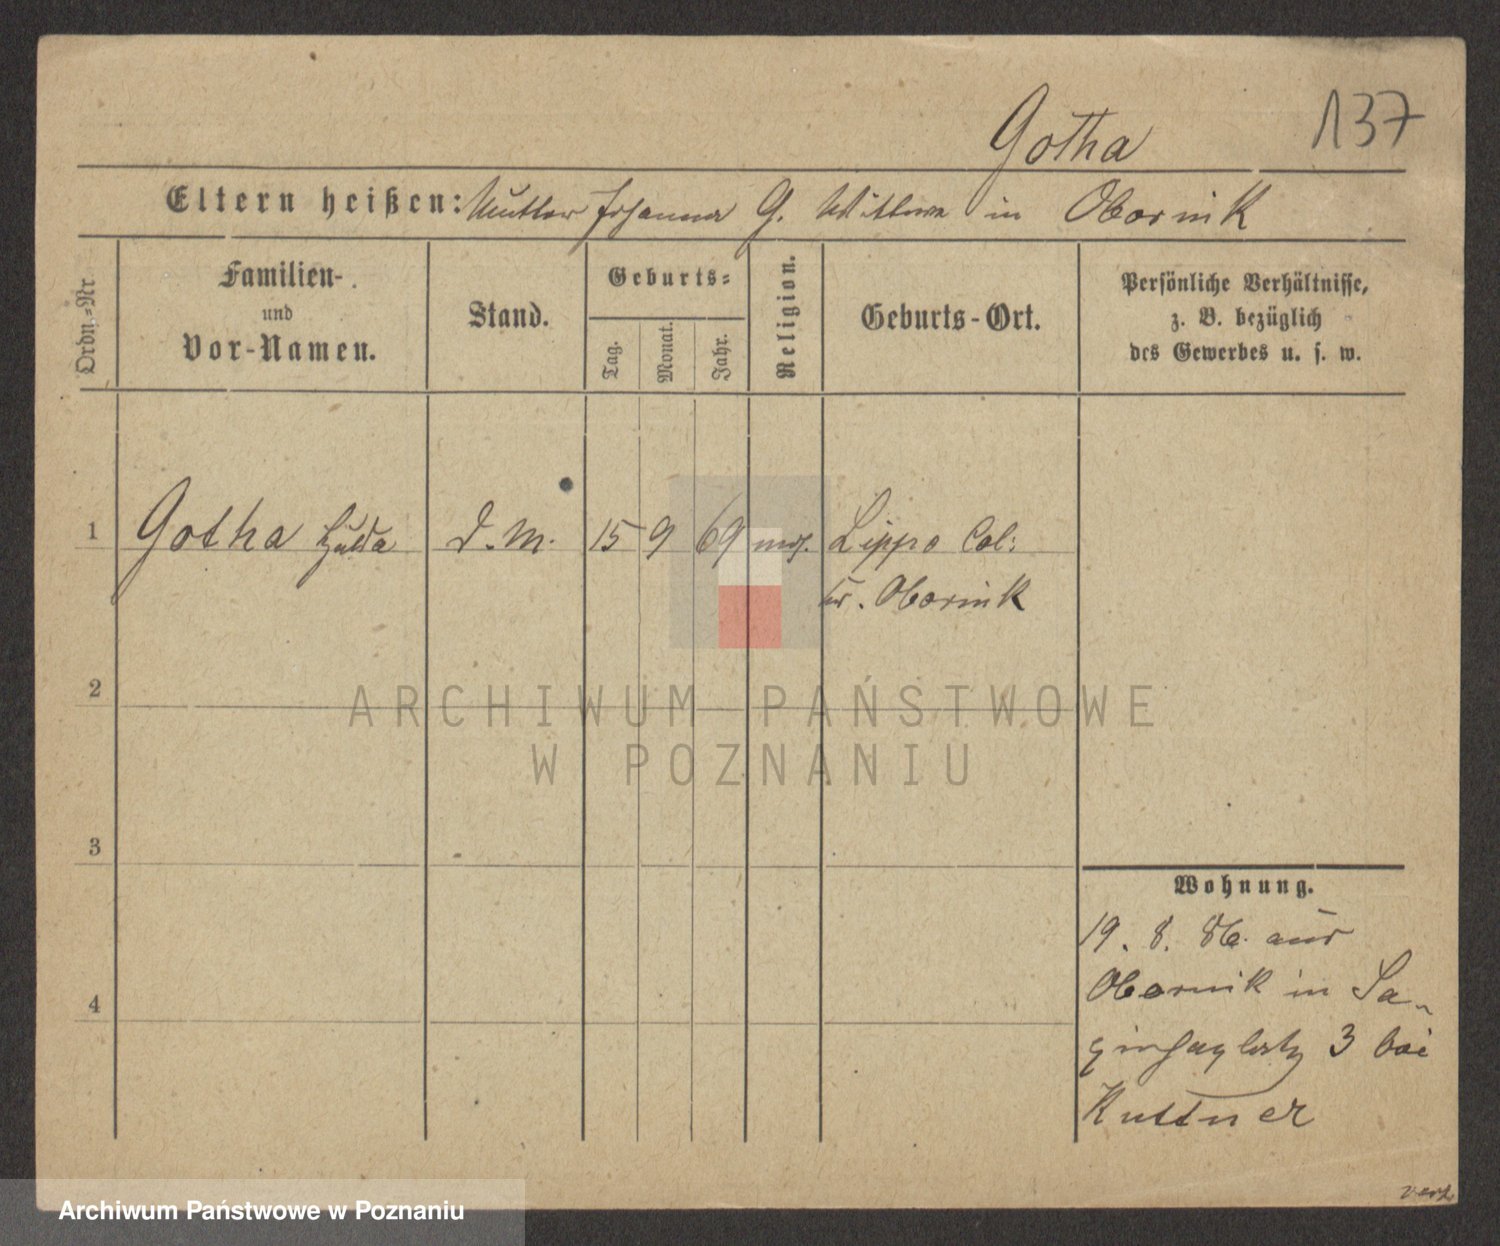 Gotha 137
Eltern heißen: Mutter Johanna G. Wittwe in Obornik
Ordn.-Nr
Familien- und Vor-Namen.
Stand.
Geburts=
Tag.
Monat.
Jahr.
Religion.
Geburts-Ort.
Persönliche Verhältnisse,
z. B. bezüglich
des Gewerbes u. s. w.
1 Gotha Hulda D. M. 15 9 69 mos. Lippa Col:
Kr. Obornik
2
ARCHIWUM PAŃSTWOWE
W POZNANIU
3
4
Wohnung.
19. 8. 86. aus
Obornik in Sa-
piehaplatz 3 bei
Kuttner
Archiwum Państwowe w Poznaniu